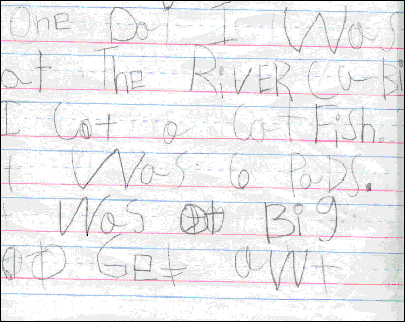 One Day I Was
at The RiVER Ca-Bi
I Cot a Cat Fish.
t Was 6 PaDS.
t Was Big
Get aWt